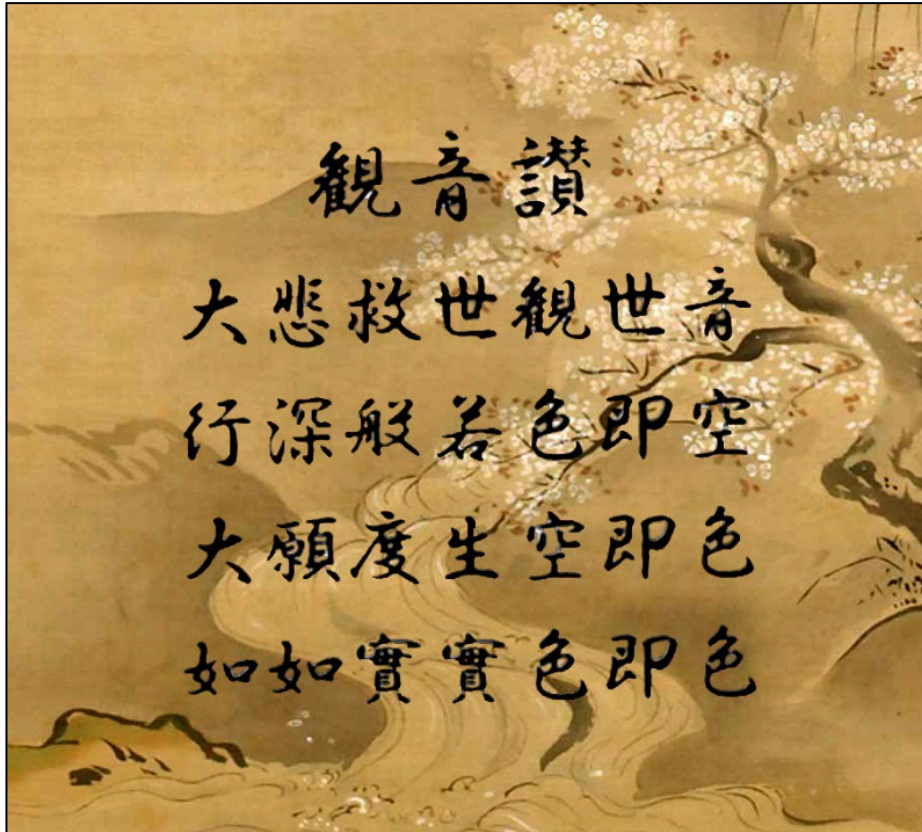 観音讃
大悲救世観世音
行深般若色即空
大願度生空即色
如如實實色即色